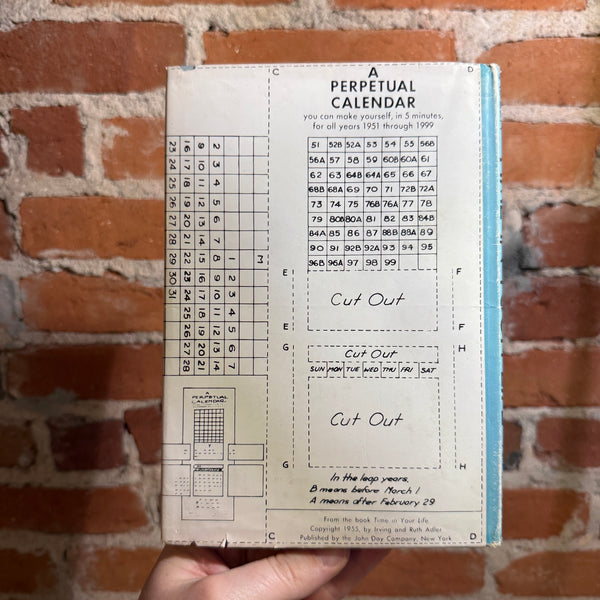 C D
A
PERPETUAL
CALENDAR
you can make yourself, in 5 minutes,
for all years 1951 through 1999
51 52B 52A 53 54 55 56B
56A 57 58 59 60B 60A 61
62 63 64B 64A 65 66 67
68B 68A 69 70 71 72B 72A
73 74 75 76B 76A 77 78
79 80B 80A 81 82 83 84B
84A 85 86 87 88B 88A 89
90 91 92B 92A 93 94 95
96B 96A 97 98 99
E F
Cut Out
E F
G H
Cut Out
SUN MON TUE WED THU FRI SAT
Cut Out
G H
In the leap years,
B means before March 1
A means after February 29
From the book Time in Your Life
Copyright 1955, by Irving and Ruth Adler
Published by the John Day Company, New York
C D
M
1 2 3 4 5 6 7
2 3 4 5 6 7 8 9 10 11 12 13 14
9 10 11 12 13 14 15 16 17 18 19 20 21
16 17 18 19 20 21 22 23 24 25 26 27 28
23 24 25 26 27 28 29 30 31
A
PERPETUAL
CALENDAR